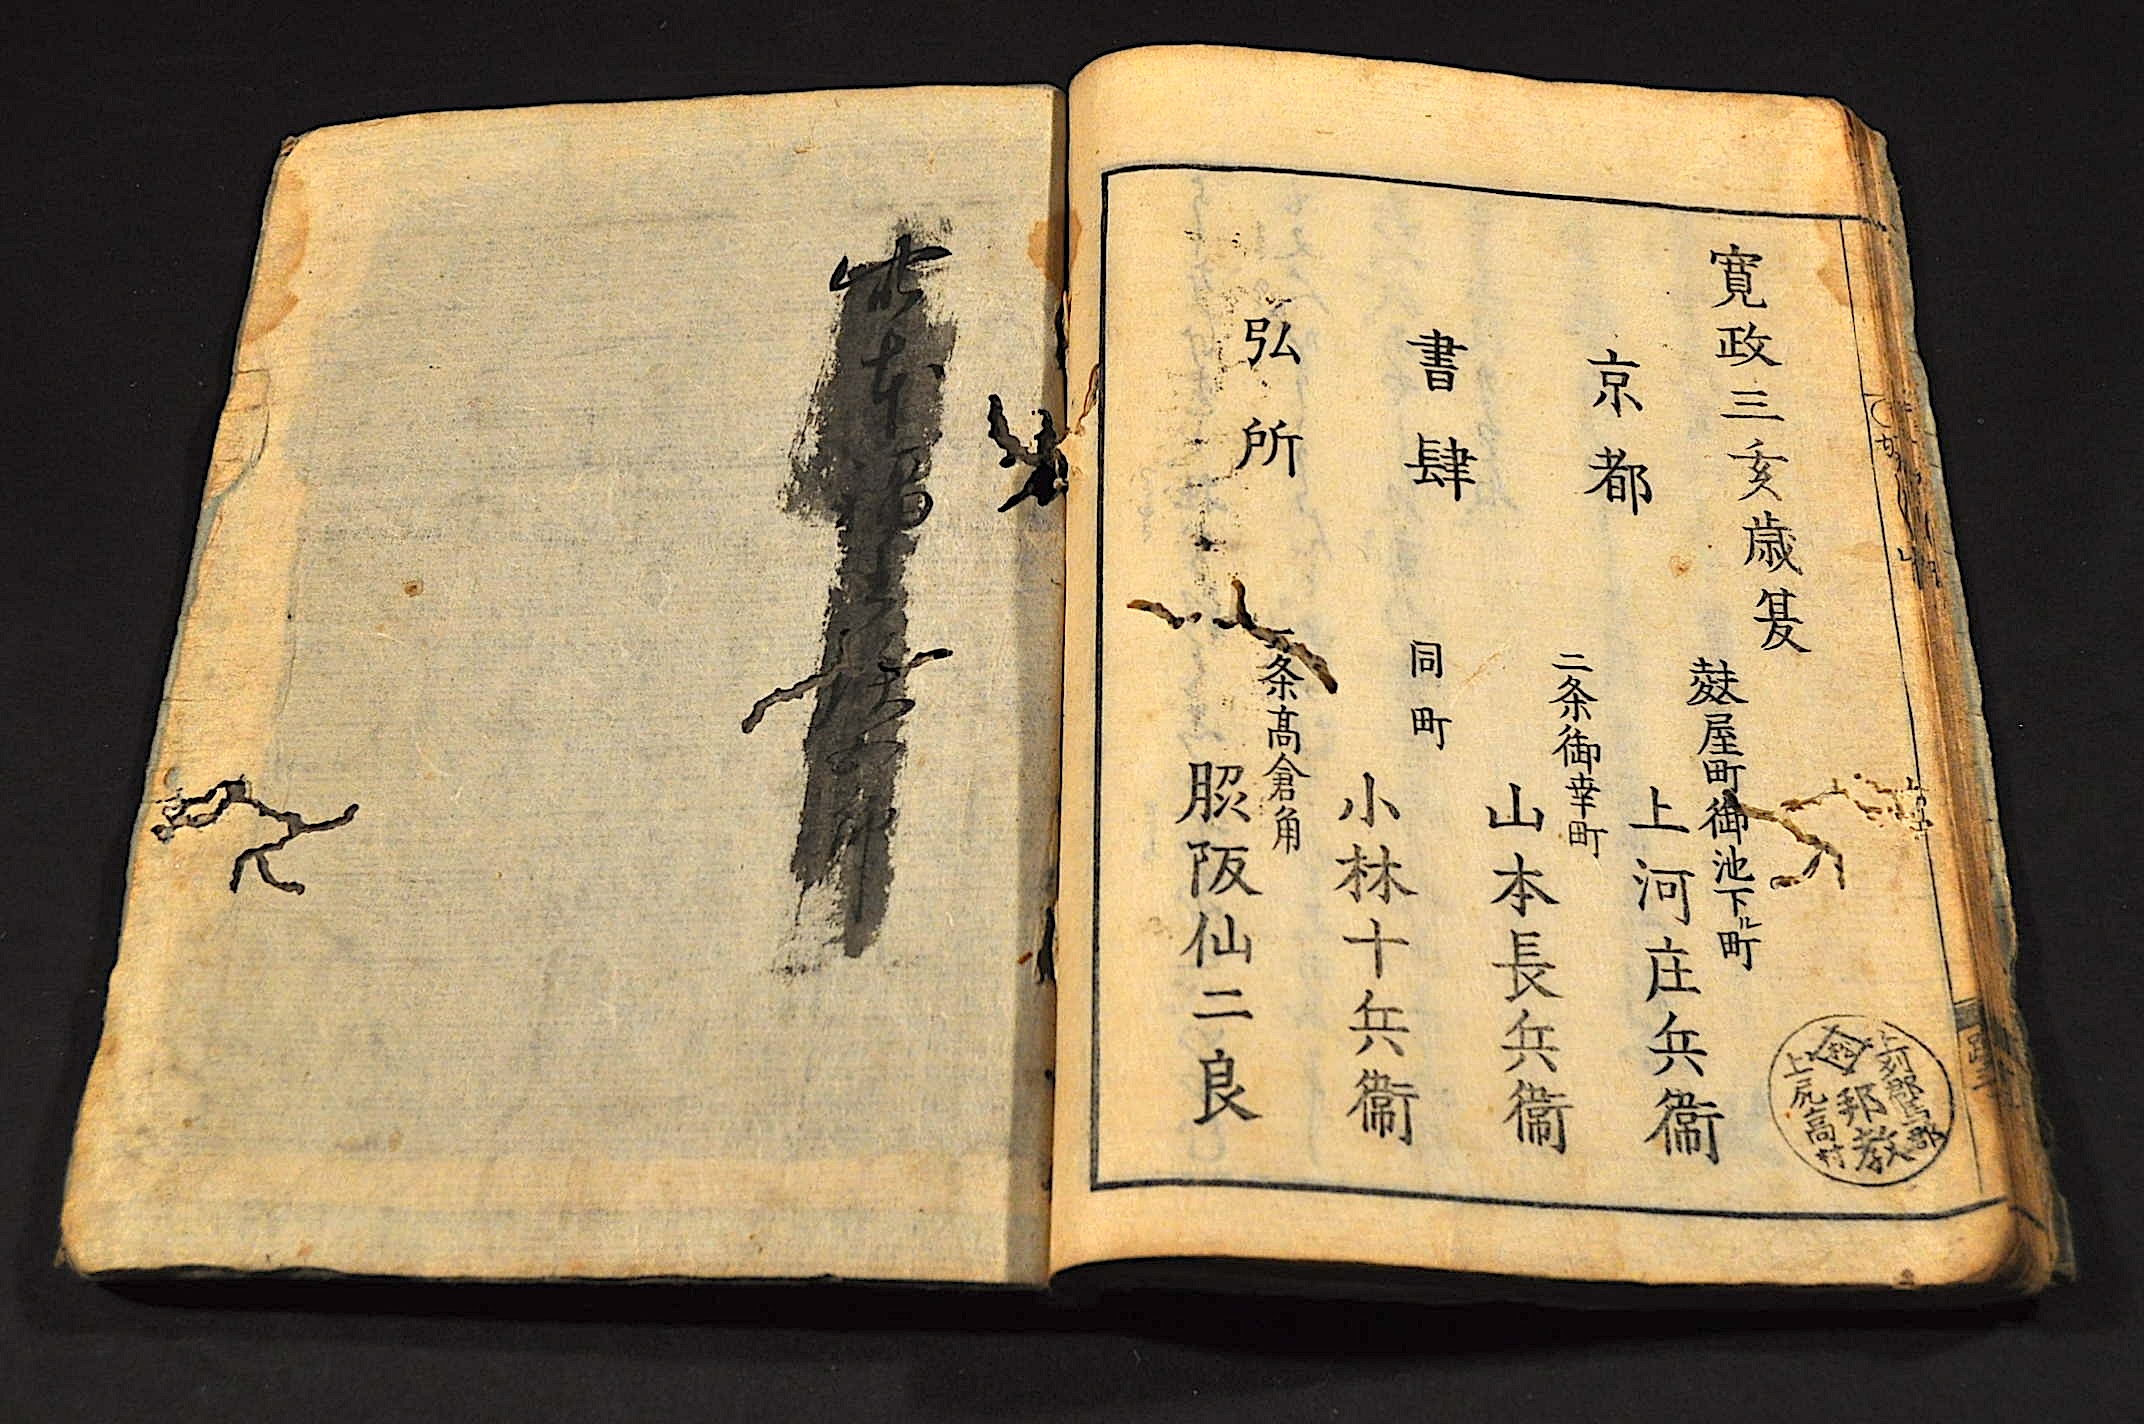 寛政三亥歳発
京都
書肆
弘所
麩屋町御池下ル町
上河庄兵衛
二条御幸町
山本長兵衛
同町
小林十兵衛
二条髙倉角
脇阪仙二良
上尻高村
邦教